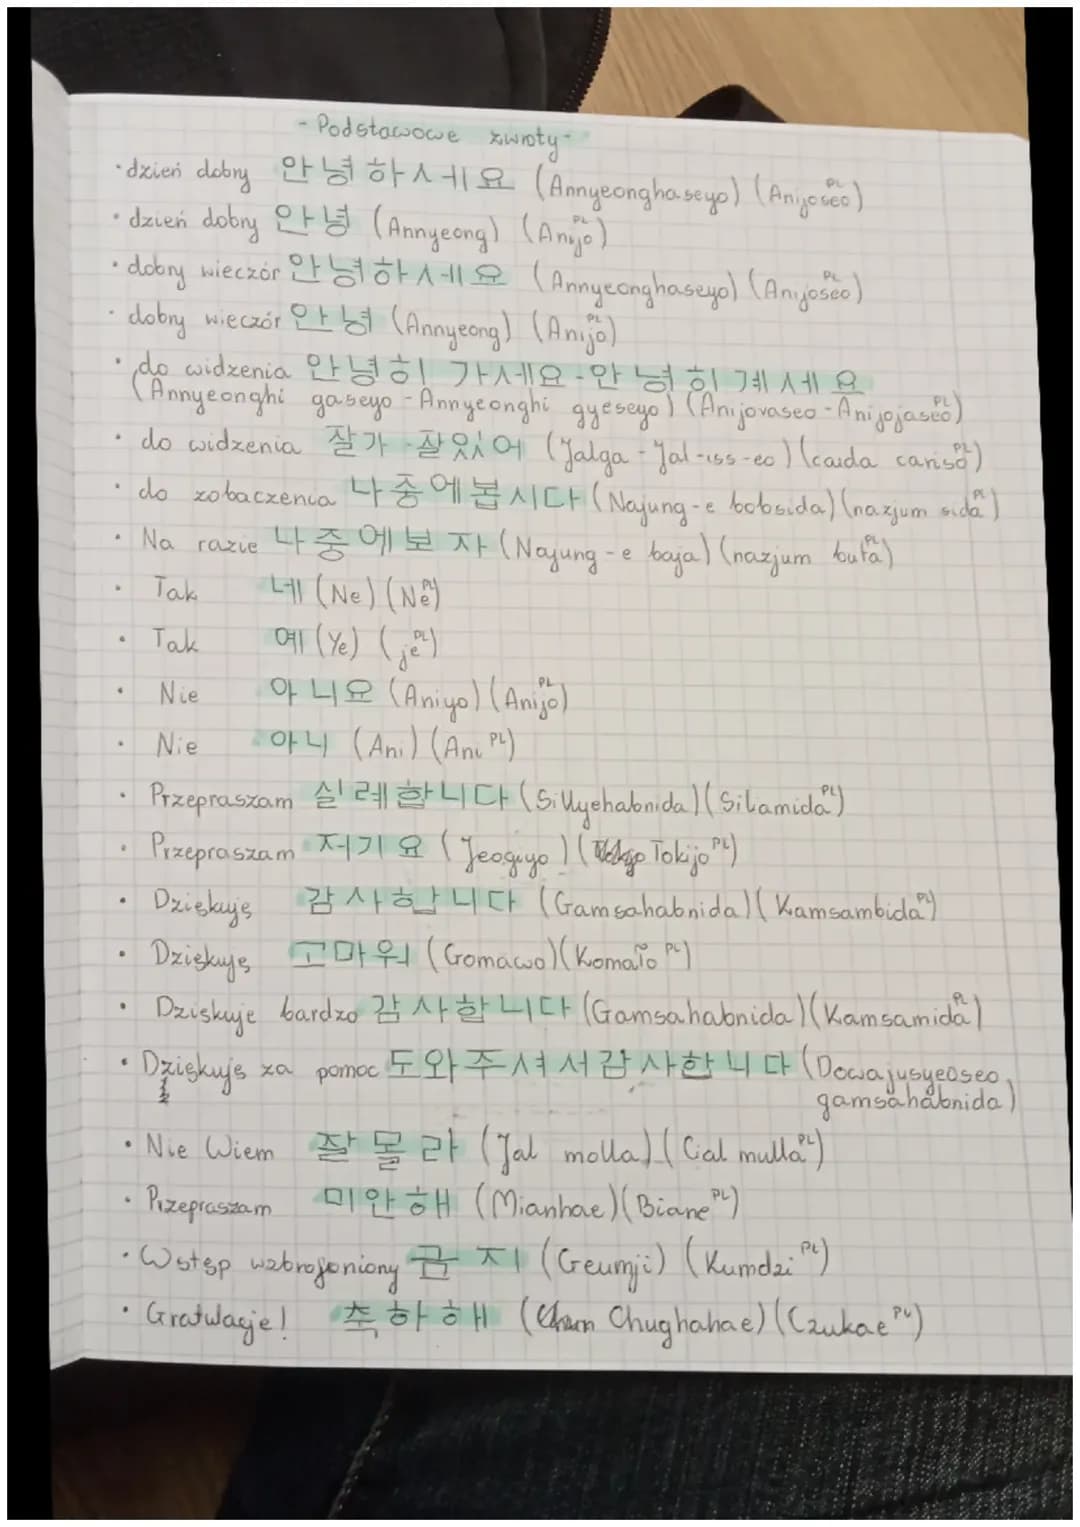 - Podstawowe zwroty -
· dzień dobry 안녕하세요 (Annyeonghaseyo) (Anijoseo PL)
· dzień dobry 안녕 (Annyeong) (Anijo PL)
· dobry wieczór 안녕하세요 (Annyeonghaseyo) (Anijoseo PL)
· dobry wieczór 안녕 (Annyeong) (Anijo PL)
· do widzenia 안녕히 가세요 - 안녕히 계세요
(Annyeonghi gaseyo - Annyeonghi gyeseyo) (Anijovaseo - Anijojaseo PL)
· do widzenia 잘가 - 잘있어 (Jalga - Jal-iss-eo) (cauda cariso PL)
· do zobaczenia 나중에봅시다 (Najung-e bobsida) (nazjum sida PL)
· Na razie 나중에보자 (Najung-e boja) (nazjum buta PL)
· Tak 네 (Ne) (Ne PL)
· Tak 예 (Ye) (je PL)
· Nie 아니요 (Aniyo) (Anijo PL)
· Nie 아니 (Ani) (Ani PL)
· Przepraszam 실례합니다 (Sillyehabnida) (Silamida PL)
· Przepraszam 저기요 (Jeogiyo) (Tokijo PL)
· Dziękuję 감사합니다 (Gamsahabnida) (Kamsambida PL)
· Dziękuję 고마워 (Gomawo) (Komało PL)
· Dziękuje bardzo 감사합니다 (Gamsahabnida) (Kamsamida PL)
· Dziękuję za pomoc 도와주셔서감사합니다 (Dowajusyeoseo
gamsahabnida)
· Nie Wiem 잘 몰라 (Jal molla) (Cial mulla PL)
· Przepraszam 미안해 (Mianhae) (Biane PL)
· Wstęp wzbroniony 금지 (Geumji) (Kumdzi PL)
· Gratulacje! 축하해 (Chughahae) (Czukae PL)